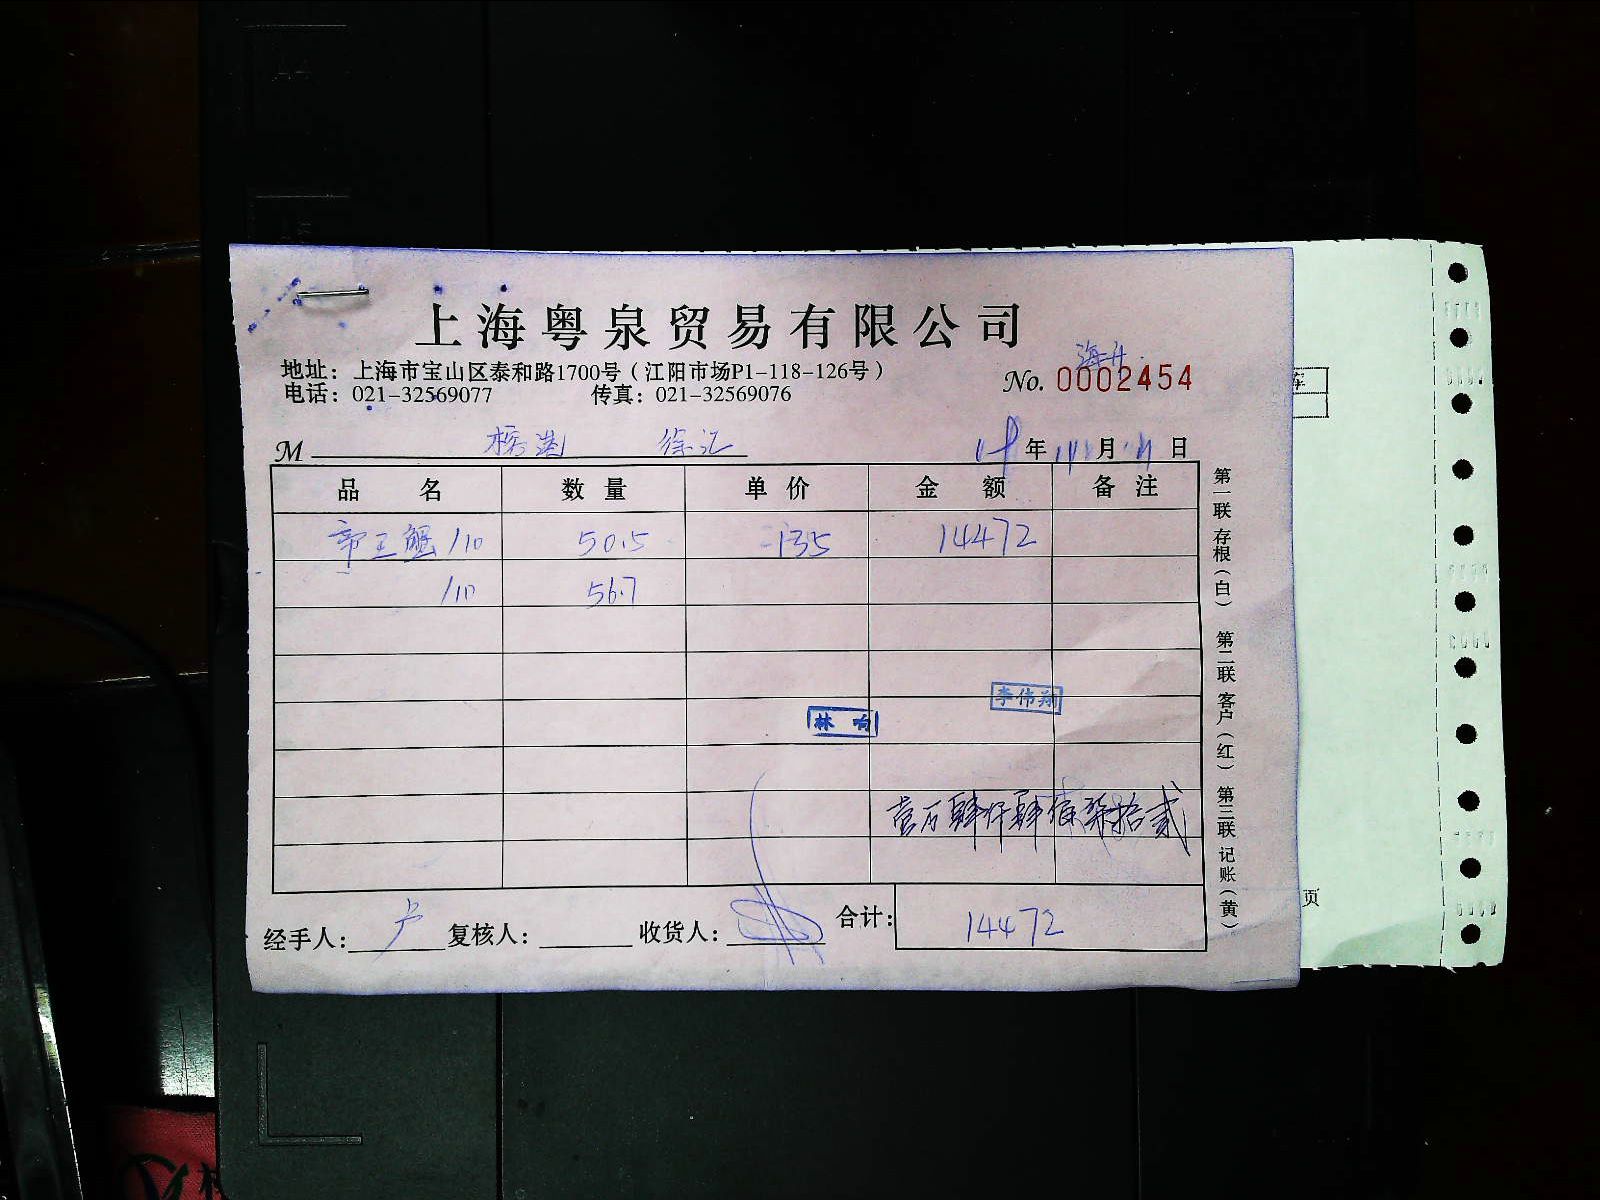 上海粤泉贸易有限公司
地址：上海市宝山区泰和路1700号（江阳市场P1-118-126号）
电话：021-32569077 传真：021-32569076
No. 0002454
M 徐汇 年 月 日
品名 数量 单价 金额 备注
帝王蟹/10 50.5 135 14472
/10 56.7
李伟翔
林响
壹万肆仟肆佰柒拾贰
经手人： 卢 复核人： 收货人： 合计： 14472
第一联 存根（白） 第二联 客户（红） 第三联 记账（黄）
页